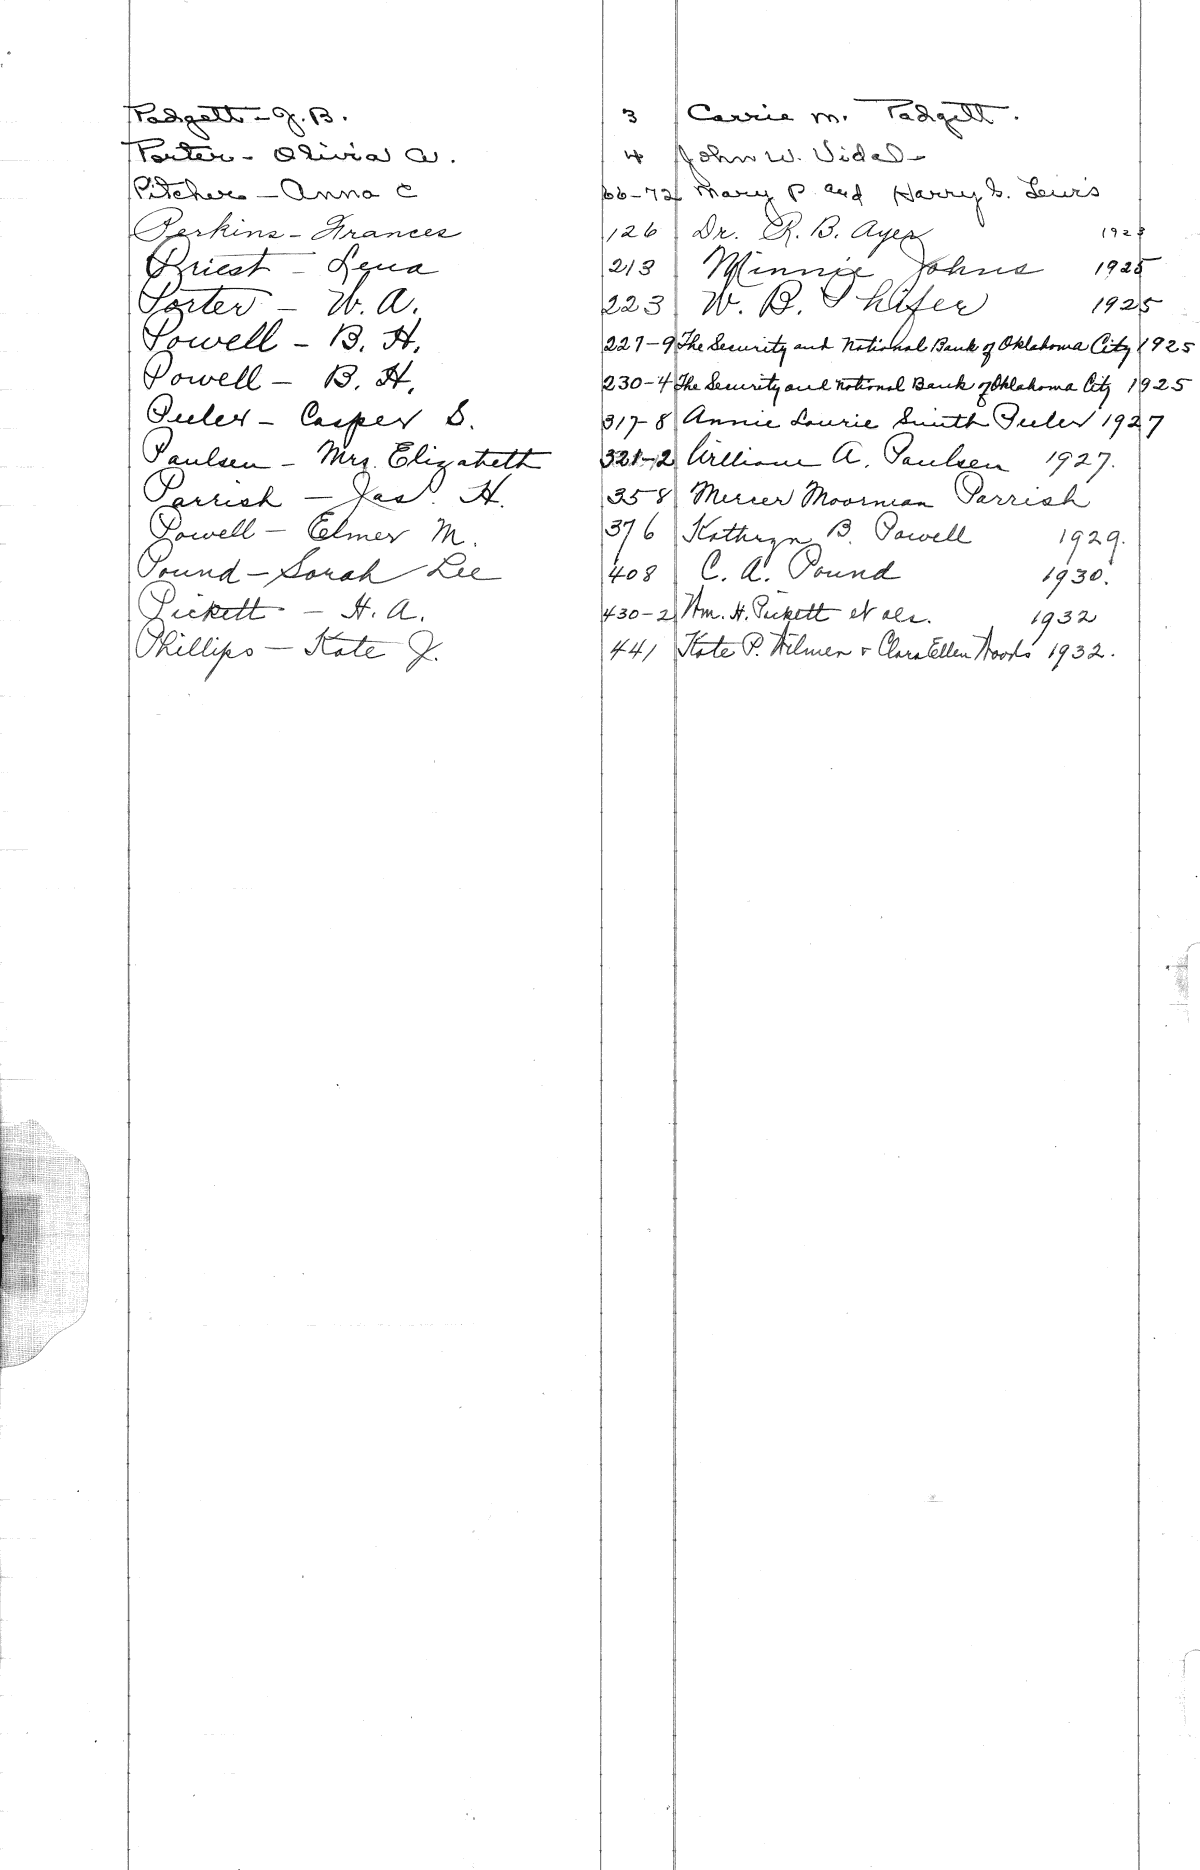 Padgett - J. B. 3 Carrie M. Padgett.
Porter - Olivia A. 4 John W. Vidal
Pitcher - Anna C 66-72 Mary P. and Harry S. Lewis
Perkins - Frances 126 Dr. R. B. Ayer 1923
Priest - Lena 213 Minnie Johns 1925
Porter - W. A. 223 W. B. Phifer 1925
Powell - B. H. 227-9 The Security and National Bank of Oklahoma City 1925
Powell - B. H. 230-4 The Security and National Bank of Oklahoma City 1925
Peeler - Casper S. 317-8 Annie Laurie Smith Peeler 1927
Paulsen - Mrs. Elizabeth 321-2 William A. Paulsen 1927.
Parrish - Jas. H. 358 Mercer Moorman Parrish
Powell - Elmer M. 376 Kathryn B. Powell 1929.
Pound - Sarah Lee 408 C. A. Pound 1930.
Pickett - H. A. 430-2 Wm. H. Pickett et als. 1932
Phillips - Kate J. 441 Kate P. Hilmen & Clara Ellen Woods 1932.